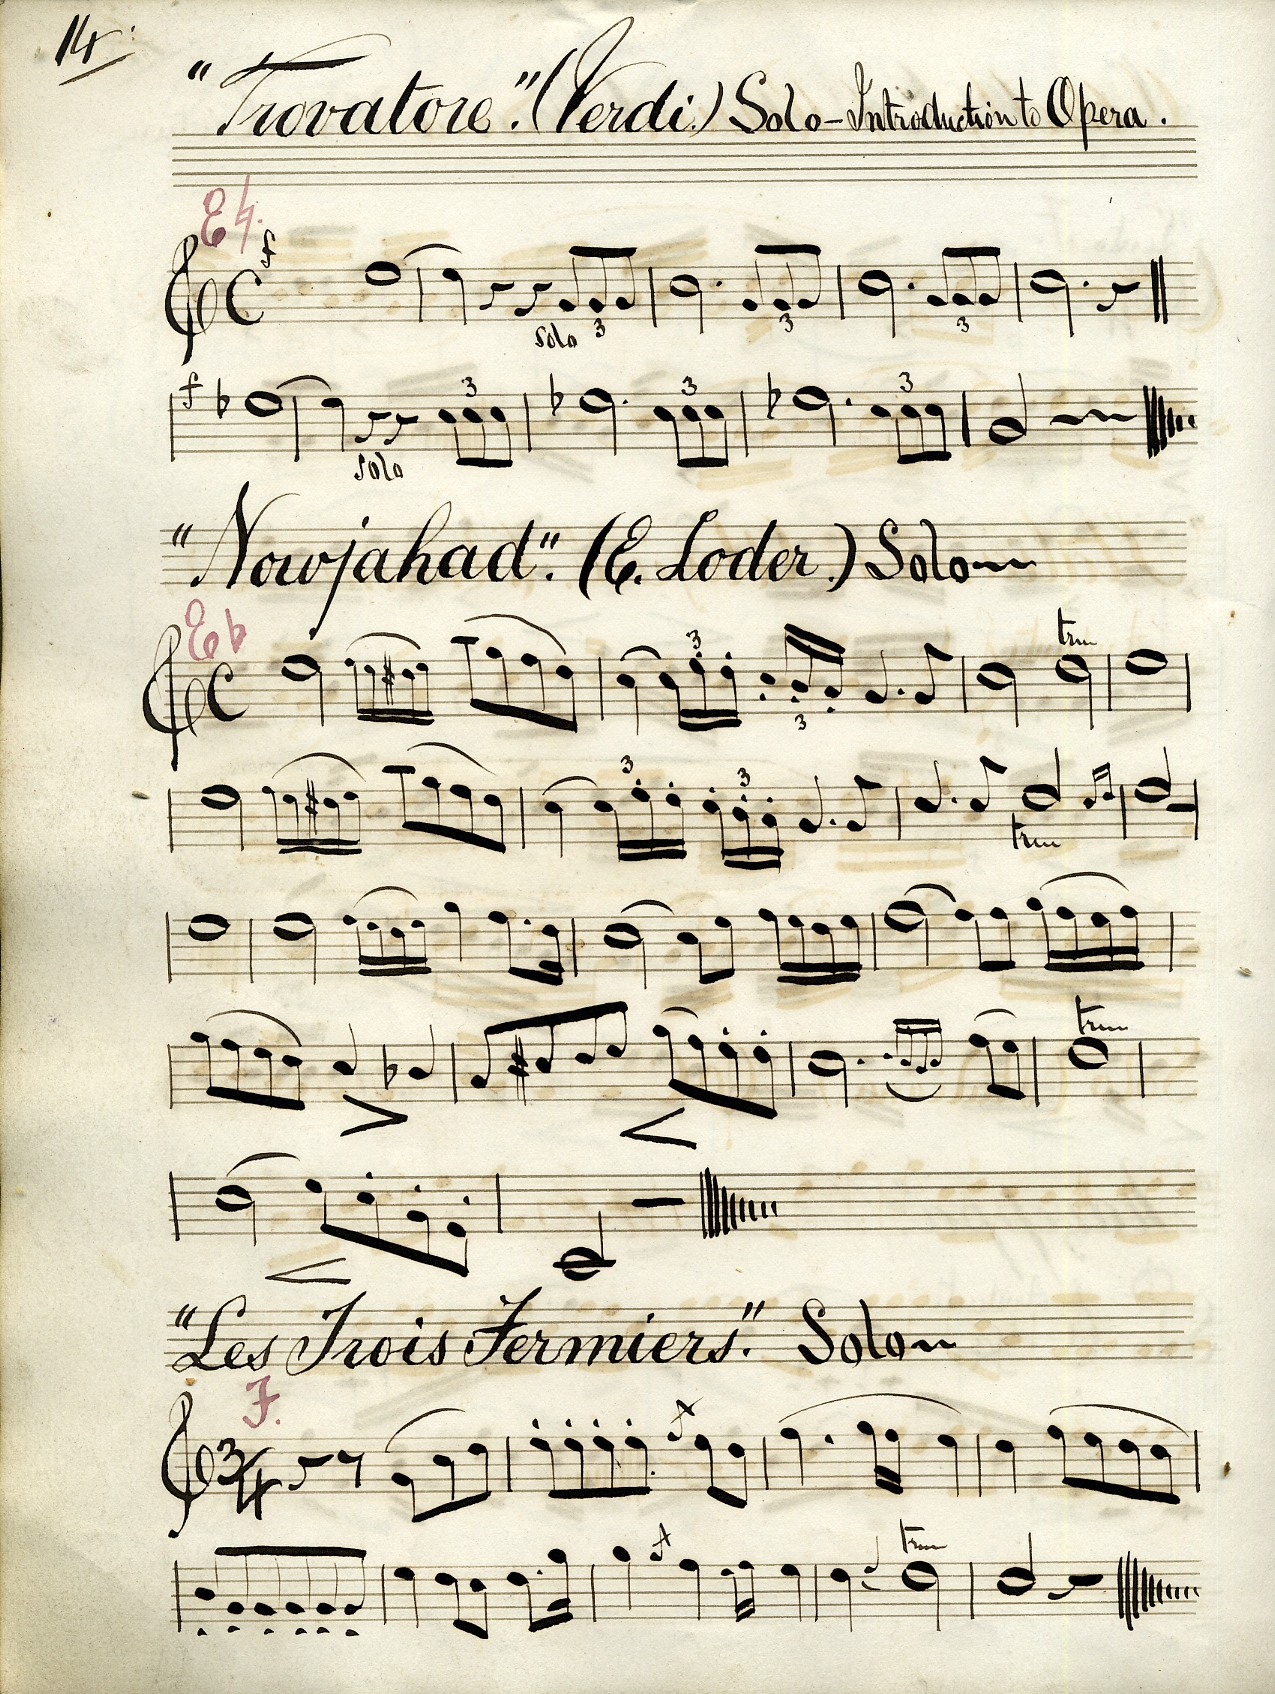 14
"Trovatore". (Verdi.) Solo - Introduction to Opera.
E♮.
C
3 3 3
Solo
3 3 3
Solo
"Nowjahad". (E. Loder.) Solo
E♭
tr
C
3
3
3 3
tr
tr
"Les Trois Fermiers". Solo
F.
3/4
tr